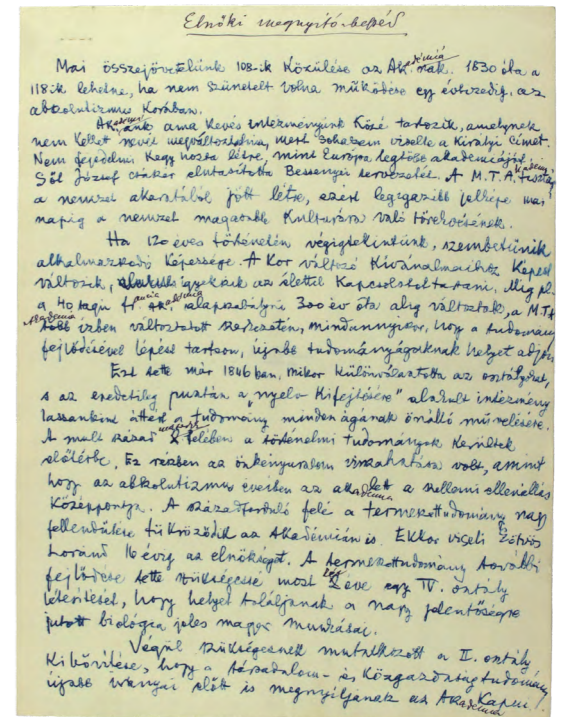 Elnöki megnyitó-beszéd
Mai összejövetelünk 108-ik közülése az Akadémiának. 1830 óta a
118-ik lehetne, ha nem szünetelt volna működése egy évtizedig, az
abszolutizmus korában.
Akadémiánk ama kevés intézményeink közé tartozik, amelynek
nem kellett nevét megváltoztatnia, mert sohasem viselte a királyi címet.
Nem fejedelmi kegy hozta létre, mint Európa legtöbb akadémiáját,
Sőt József császár elutasította Bessenyei tervezetét. A M.T.A. tisztán
a nemzet akaratából jött létre, ezért legigazibb jelképe mai
napig a nemzet magasabb kultúrára való törekvésének.
Ha 120 éves történetén végigtekintünk, szembetűnik
alkalmazkodó képessége. A kor változó kívánalmaihoz képest
változik, igyekszik az élettel kapcsolatot tartani. Míg pl.
a 40 tagú francia akadémia alapszabályai 300 év óta alig változtak, a M.T.
Akadémia több ízben változtatott szerkezetén, mindannyiszor, hogy a tudomány
fejlődésével lépést tartson, újabb tudományágaknak helyet adjon.
Ezt tette már 1846 ban, mikor különválasztotta az osztályokat,
s az eredetileg pusztán a „nyelv kifejtésére" alakult intézmény
lassankint áttért a tudomány minden ágának önálló művelésére.
A mult század második felében a történelmi tudományok kerültek
előtérbe. Ez részben az önkényuralom visszahatása volt, amint
hogy az abszolutizmus éveiben az akadémia lett a szellemi ellenállás
középpontja. A századforduló felé a természettudomány nagy
fellendülése tükröződik az Akadémián is. Ekkor viseli Eötvös
Loránd 16 évig az elnökséget. A természettudomány további
fejlődése tette szükségessé most éve egy IV. osztály
létesítését, hogy helyet találjanak a nagy jelentőségre
jutott biológia jeles magyar munkásai.
Végül szükségesnek mutatkozott a II. osztály
kibővítése, hogy a társadalom- és közgazdaságtudomány
újabb irányai előtt is megnyíljanak az Akadémia kapui.